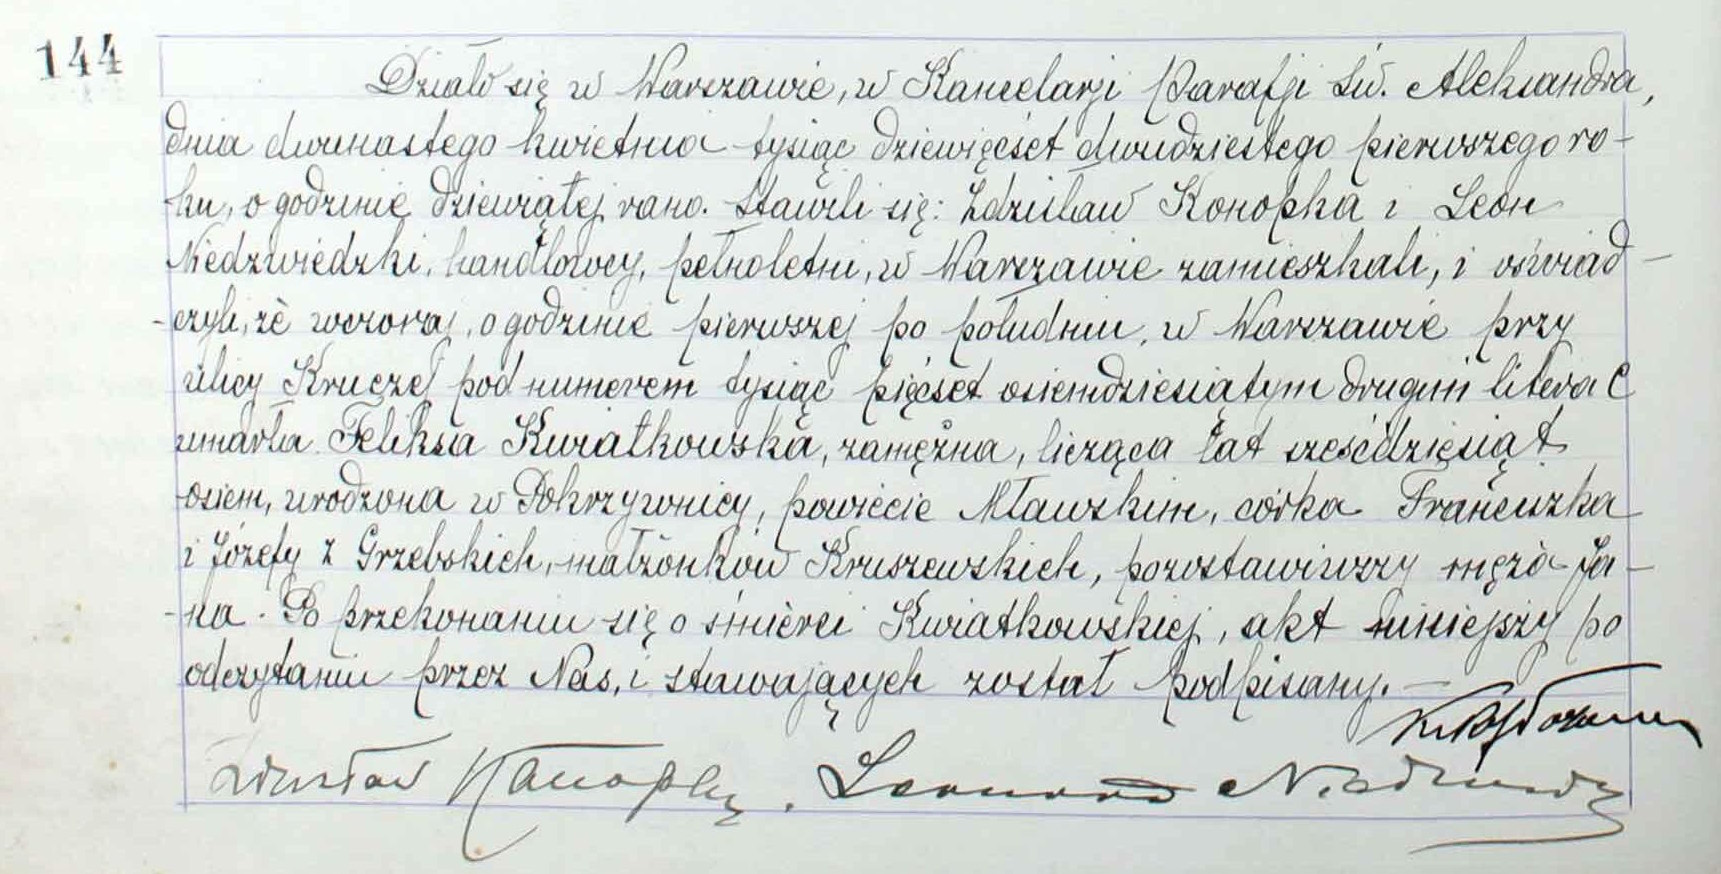 144
Działo się w Warszawie, w Kancelarji Parafji Św. Aleksandra,
dnia dwunastego kwietnia tysiąc dziewięćset dwudziestego pierwszego ro-
ku, o godzinie dziewiątej rano. Stawili się: Zdzisław Konopka i Leon
Niedzwiedzki, handlowcy, pełnoletni, w Warszawie zamieszkali, i oświad-
-czyli, że wczoraj, o godzinie pierwszej po południu, w Warszawie przy
ulicy Kruczej pod numerem tysiąc pięćset osiemdziesiątym drugim litera C
umarła Feliksa Kwiatkowska, zamężna, licząca lat sześćdziesiąt
osiem, urodzona w Pokrzywnicy, powiecie Mławskim, córka Franciszka
i Józefy z Grzebskich, małżonków Kruszewskich, pozostawiwszy męża Ja-
-na. Po przekonaniu się o śmierci Kwiatkowskiej, akt niniejszy po
odczytaniu przez Nas, i stawających został podpisany.
Zdzisław Konopka. Leonard